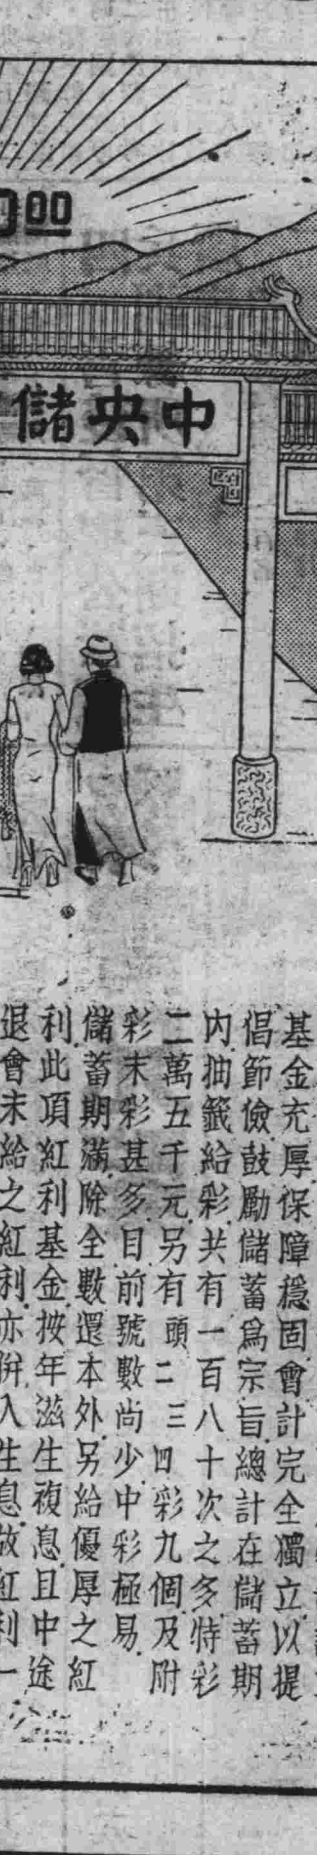 00
中央儲
基金充厚保障穩固會計完全獨立以提
倡節儉鼓勵儲蓄爲宗旨總計在儲蓄期
內抽籤給彩共有一百八十次之多特彩
二萬五千元另有頭二三四彩九個及附
彩末彩甚多目前號數尚少中彩極易
儲蓄期滿除全數還本外另給優厚之紅
利此項紅利基金按年滋生複息且中途
退會未給之紅利亦併入生息故紅利一